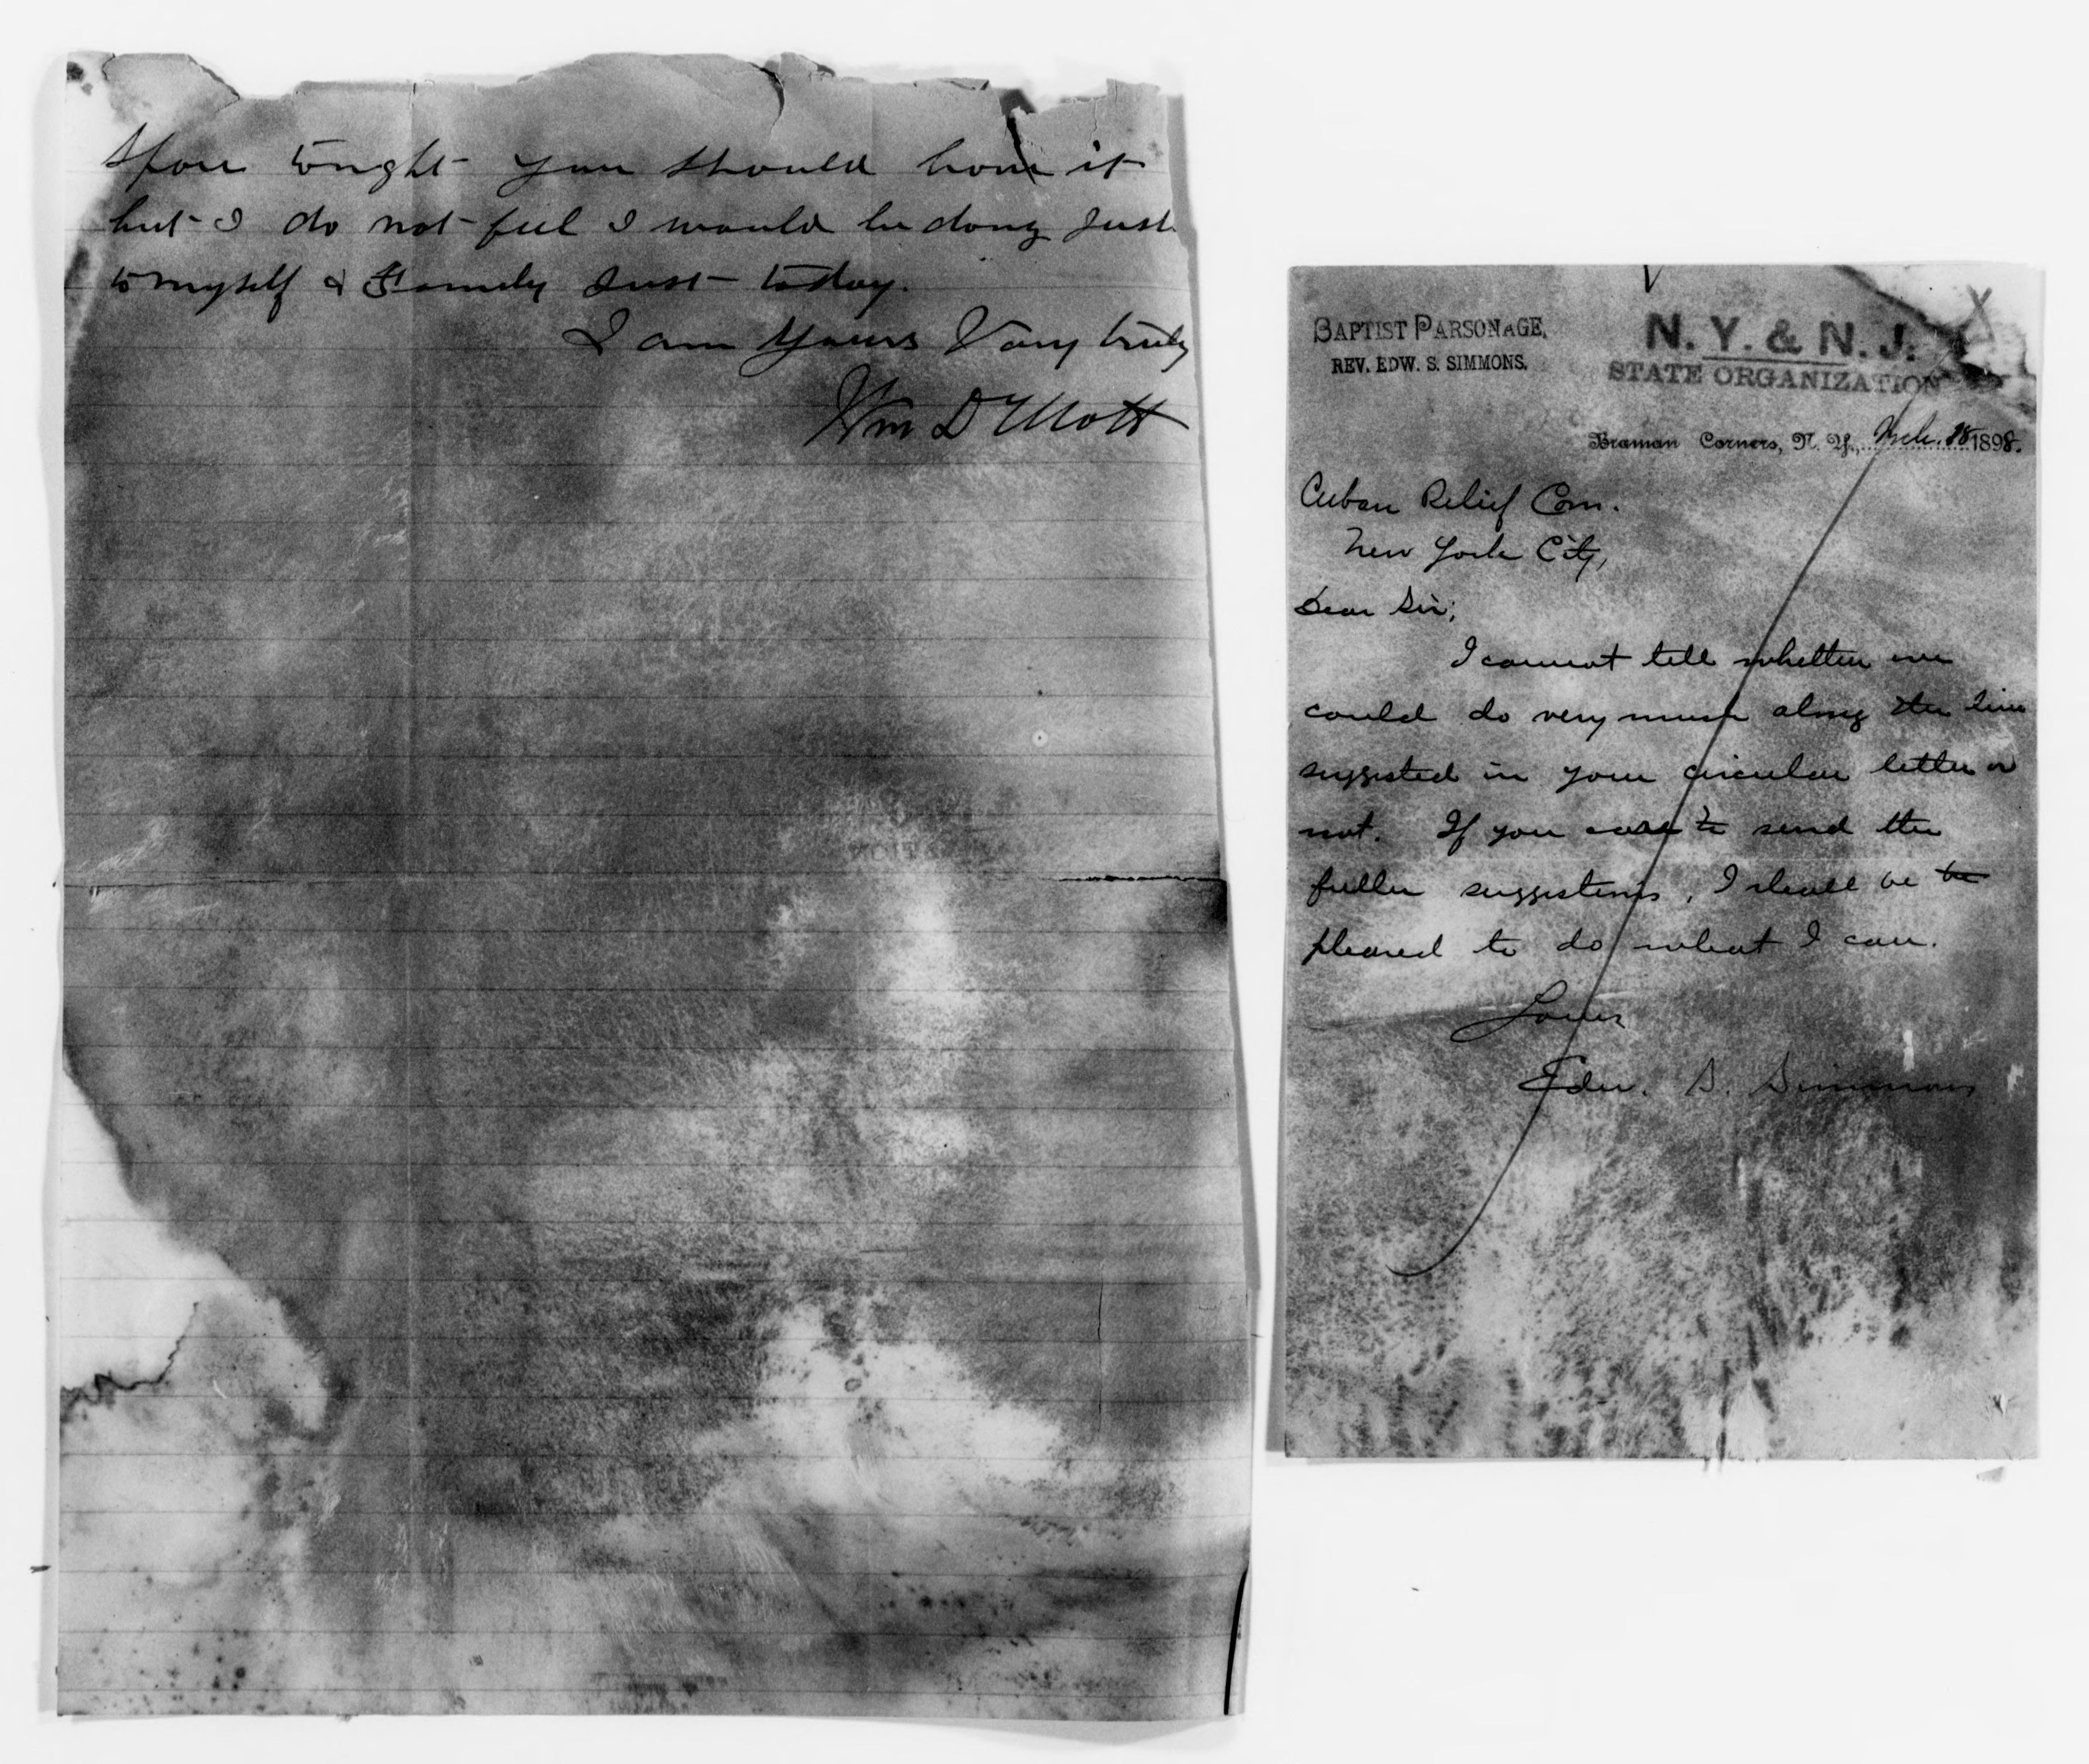 you should have it
but I do not feel I would be doing Just
to myself & Family Just today.
I am Yours Very truly
Wm D Mott
BAPTIST PARSONAGE,
REV. EDW. S. SIMMONS.
N. Y. & N. J.
STATE ORGANIZATION
Braman Corners, N. Y., Mch. 28 1898.
Cuban Relief Com.
New York City,
Dear Sir;
I cannot tell whether we
could do very much along the line
suggested in your circular letter or
not. If you care to send the
fuller suggestions, I shall be to
pleased to do what I can.
Yours
Edw. S. Simmons